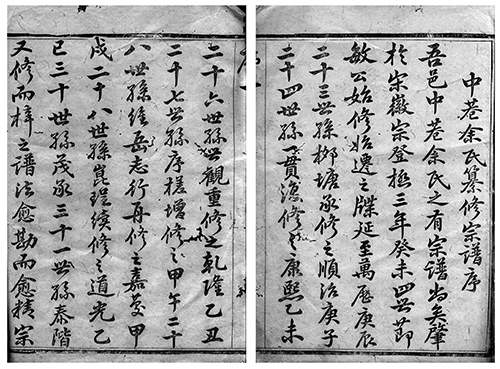 中巷余氏纂修宗譜序
吾邑中巷余氏之有宗譜尚矣肇
於宗徽宗登極三年癸未四世節
敏公始修始遷之牒延至萬歷庚辰
二十三世孫柳塘承修之順治庚子
二十四世孫一貫修之康熙乙未
二十六世孫世觀重修之乾隆乙丑
二十七世孫序槎增修之甲午二十
八世孫維岳志行再修之嘉慶甲
戌二十八世孫崑續修之道光乙
巳三十世孫茂承三十一世孫泰階
又修而梓之譜法愈勘而愈精宗